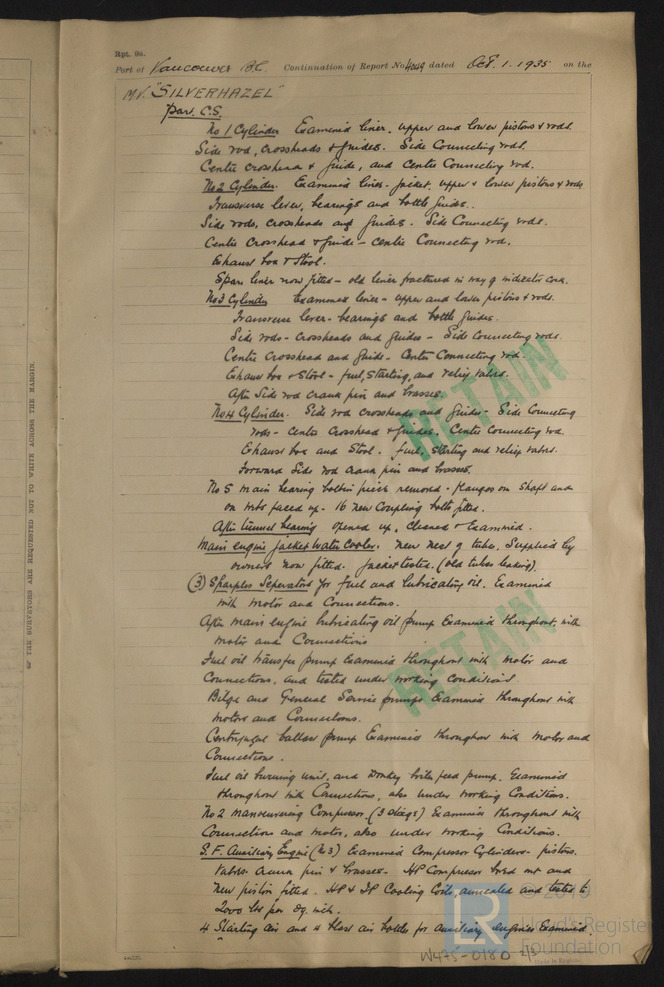 Rpt. 9a.
Port of Vancouver B.C. Continuation of Report No 4049 dated Oct. 1. 1935 on the
M.V. "SILVERHAZEL"
Part C.S.
No 1 Cylinder Examined liner, upper and lower pistons & rods.
Side rod, crossheads & guides. Side Connecting rods.
Centre crosshead & guide, and Centre Connecting rod.
No 2 Cylinder. Examined liner - jacket, upper & lower pistons & rods
Transverse lever, bearings and bottle guides.
Side rods, crossheads and guides. Side Connecting rods.
Centre Crosshead & guide - centre Connecting rod.
Exhaust box & Stool.
Spare liner now fitted - old liner fractured in way of indicator cock.
No 3 Cylinder Examined liner - upper and lower pistons & rods.
Transverse lever - bearings and bottle guides.
Side rods - Crossheads and guides - Side Connecting rods.
Centre Crosshead and guide - Centre Connecting rod.
Exhaust box & Stool - fuel, starting, and relief valves.
Aft Side rod crank pin and brasses.
No 4 Cylinder. Side rod crossheads and guides - Side Connecting
rods - Centre Crosshead & guides. Centre Connecting rod.
Exhaust box and Stool. fuel, starting and relief valves.
Forward Side rod crank pin and brasses.
No 5 main bearing bottom piece removed - flanges on shaft and
on webs faced up - 16 new Coupling bolts fitted.
Aft tunnel bearing opened up, Cleaned & Examined.
Main engine jacket water Cooler. New nest of tubes, Supplied by
owners now fitted. Jacket tested. (old tubes leaking).
(3) Sharples Seperators for fuel and lubricating oil. Examined
with motor and Connections.
Aft main engine lubricating oil pump Examined throughout, with
motor and Connections
Fuel oil transfer pump Examined throughout with motor and
Connections, and tested under working Conditions.
Bilge and General Service pumps Examined throughout with
motors and Connections.
Centrifugal ballast pump Examined throughout with motor and
Connections.
Fuel oil burning unit, and Donkey boiler feed pump. Examined
throughout with Connections, also under working Conditions.
No 2 manoeuvering Compressor. (3 stage) Examined throughout with
Connections and motor, also under working Conditions.
S.F. Auxiliary Engine (No 3) Examined Compressor Cylinders - pistons.
Valves. crank pin & brasses - HP Compressor bored out and
new piston fitted. HP & IP Cooling Coils, annealed and tested to
2000 lbs per sq. inch.
4 Starting air and 4 blast air bottles for auxiliary engines Examined.
RETAIN
RETAIN
OF THE SURVEYORS ARE REQUESTED NOT TO WRITE ACROSS THE MARGIN.
© 2019
LR
Lloyd's Register
Foundation
W475-0180 2/3